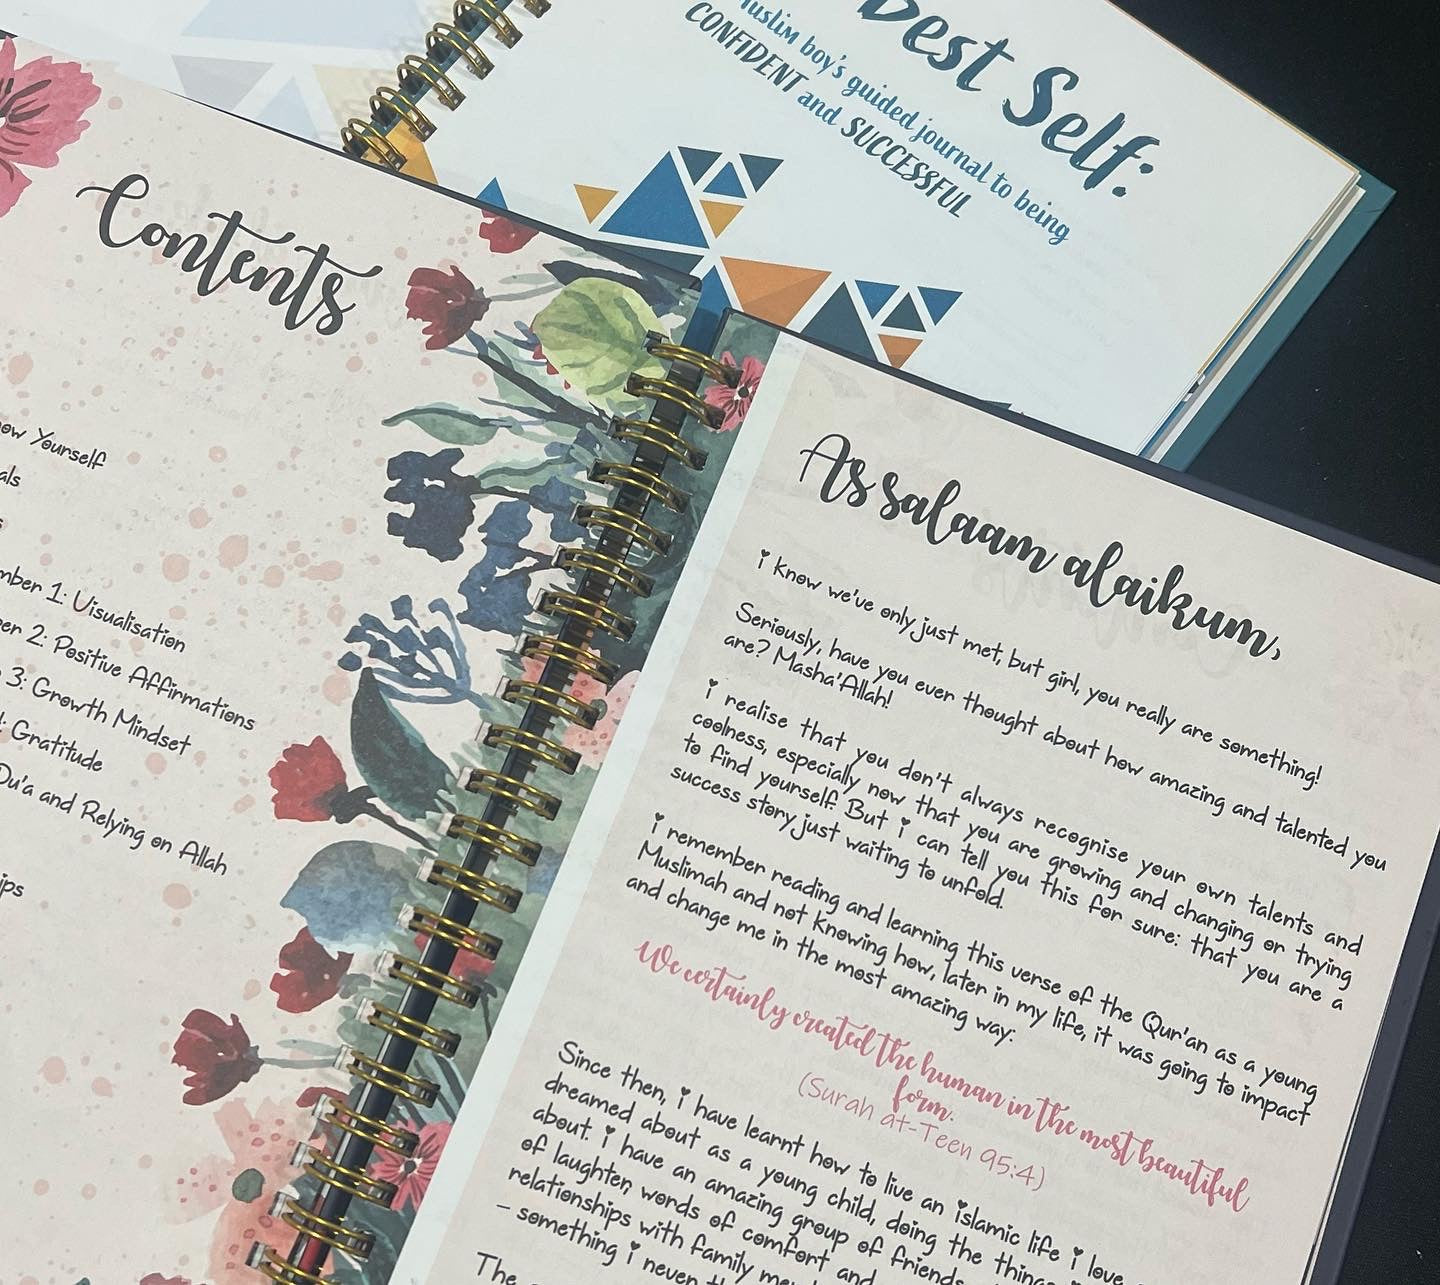 Best Self:
Muslim boy's guided journal to being
CONFIDENT and SUCCESSFUL
Contents
Yourself
Visualisation
2: Positive Affirmations
3: Growth Mindset
Gratitude
Du'a and Relying on Allah
As salaam alaikum,
i know we've only just met, but girl, you really are something!
Seriously, have you ever thought about how amazing and talented you
are? Masha'Allah!
i realise that you don't always recognise your own talents and
coolness, especially now that you are growing and changing or trying
to find yourself. But i can tell you this for sure: that you are a
success story just waiting to unfold.
i remember reading and learning this verse of the Qur'an as a young
Muslimah and not knowing how, later in my life, it was going to impact
and change me in the most amazing way:
We certainly created the human in the most beautiful
form.
(Surah at-Teen 95:4)
Since then, i have learnt how to live an islamic life i love,
dreamed about as a young child, doing the things
about. i have an amazing group of friends,
of laughter, words of comfort and
relationships with family
– something i never
The